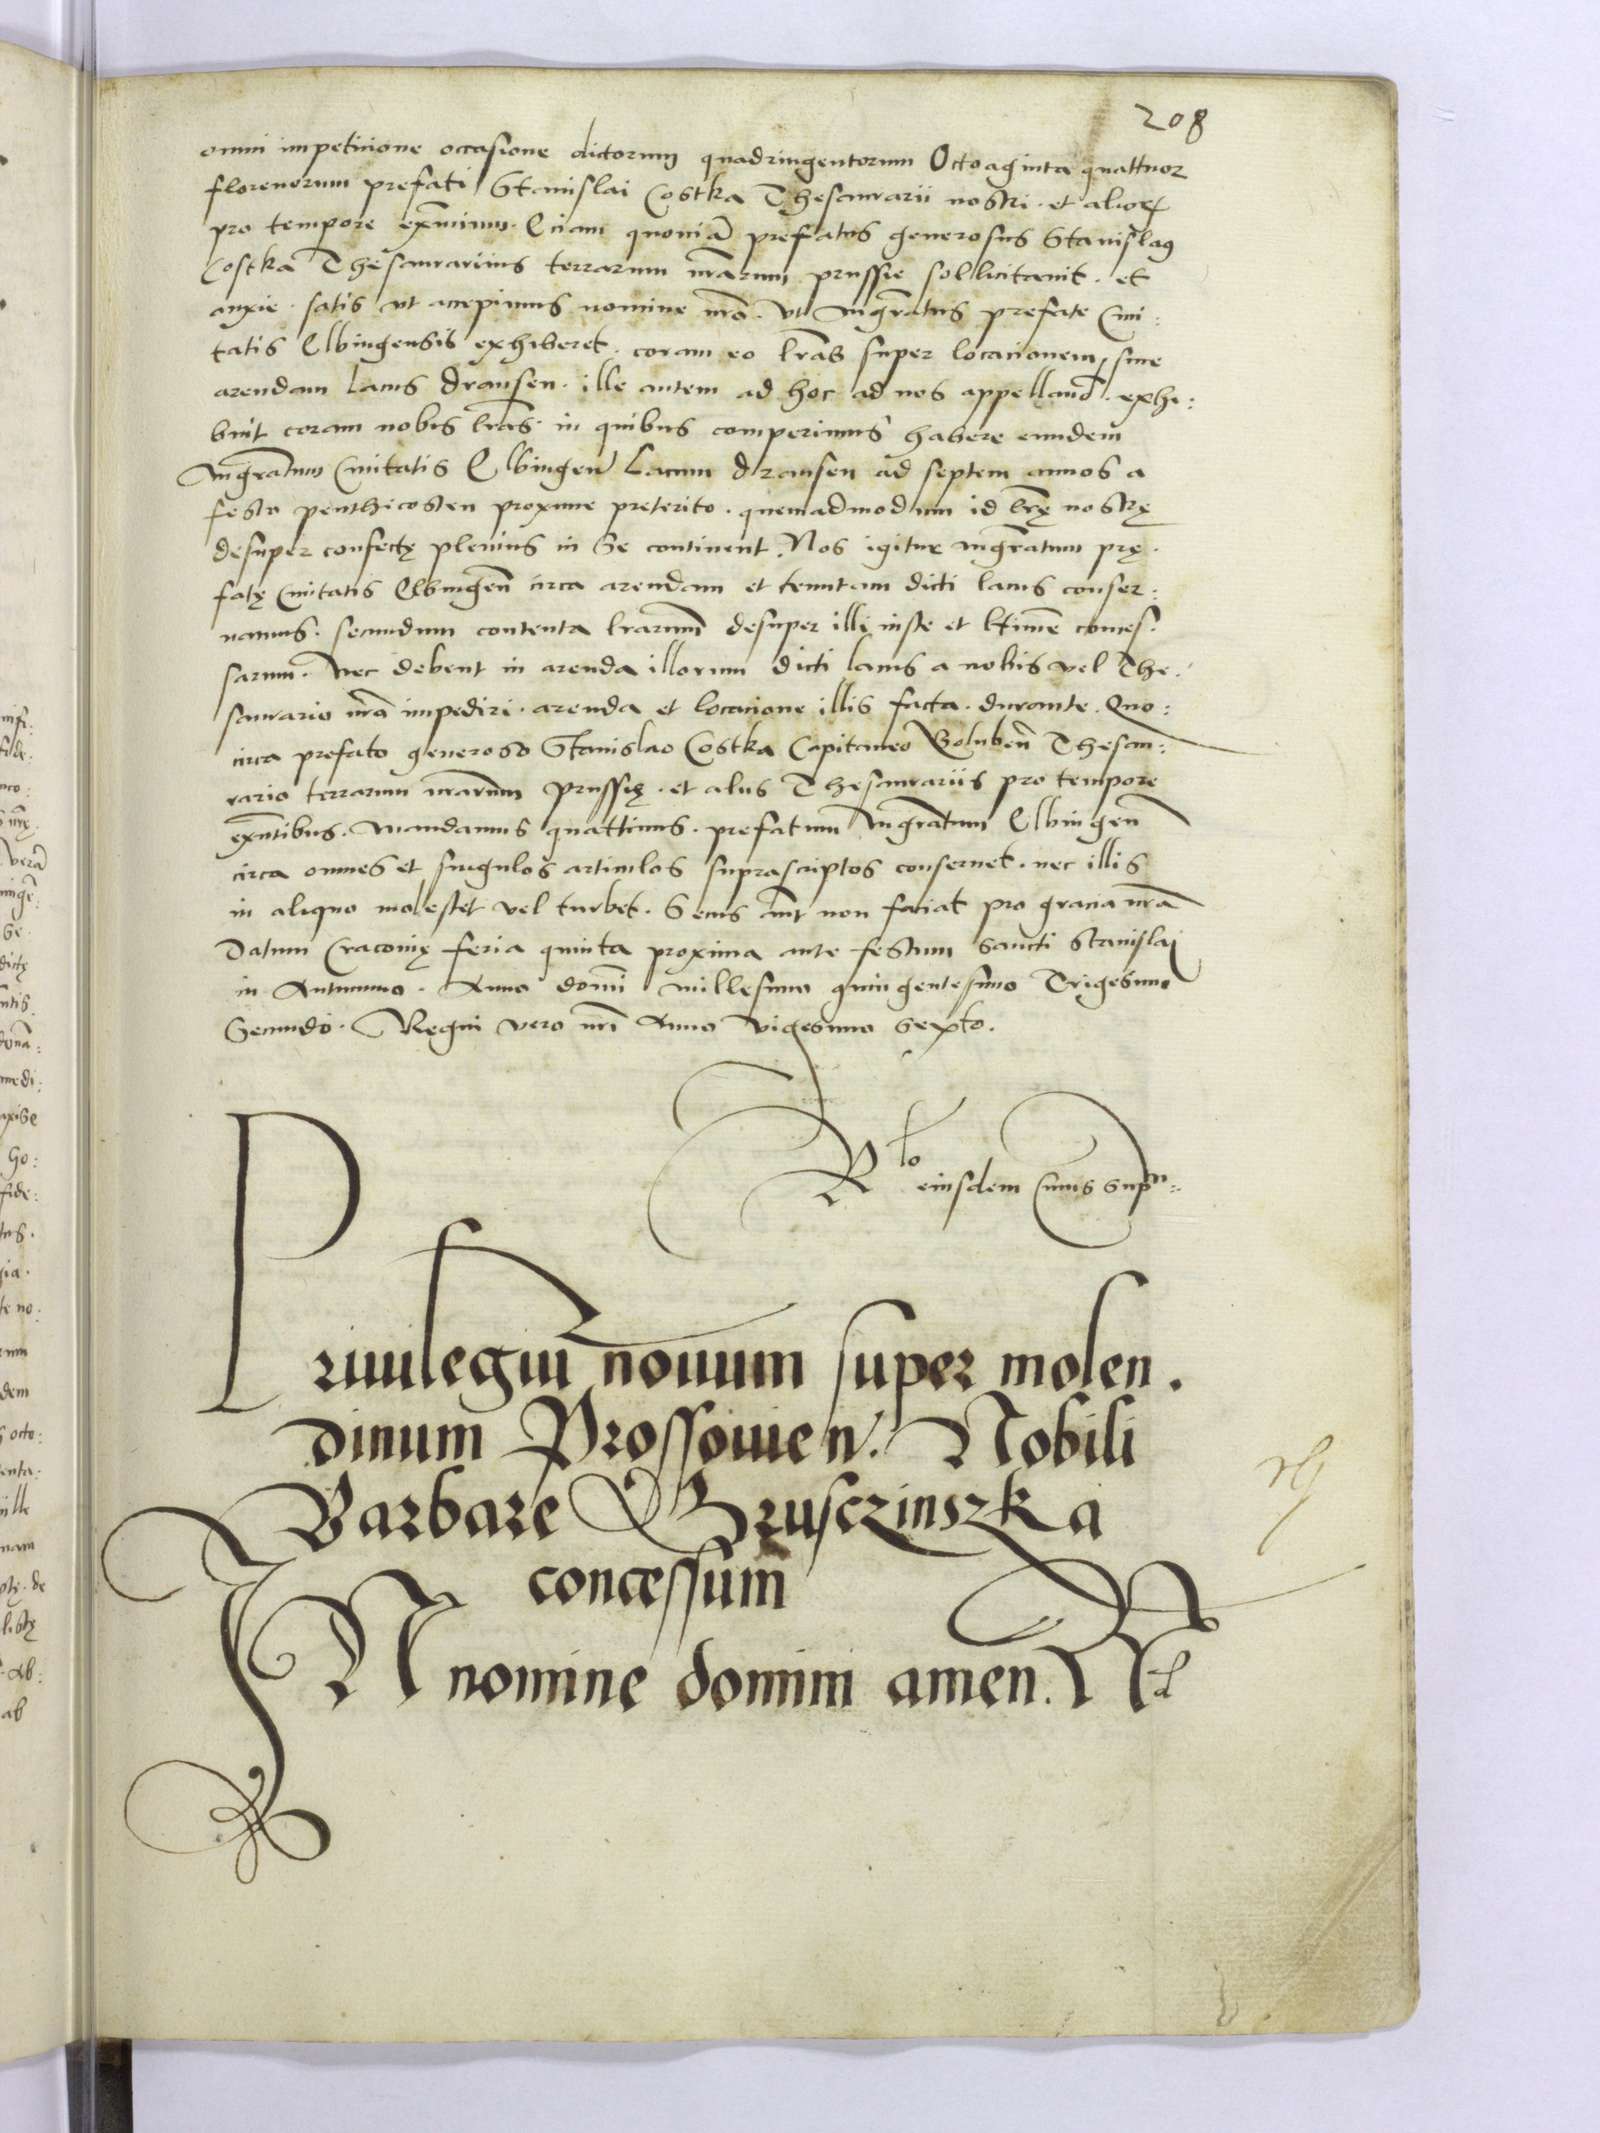 208
omni impeticione occasione dictorum quadringentorum Octoaginta quattuor
florenorum prefati Stanislai Costka Thesaurarii nostri · et alior
pro tempore exñcium · Etiam quoniã prefatus generosus Stanislaus
Costka Thesaurarius terrarum nrãrum prussie sollicitauit · et
anxie · satis vt accepimus nomine nrõ · vt mgr̃atus prefate Ciui:
tatis Elbingensis exhiberet · coram eo lrãs super locacionem, siue
arendam lacus drausen · ille autem ad hoc ad nos appellañ · exhi:
buit coram nobis lrãs · in quibus comperimus habere eundem
mgr̃atum Ciuitatis Elbingeñ Lacum drausen ad septem annos a
festo penthicosten proxime preterito · quemadmodum id lrę̃ nostrę
desuper confectę plenius in se continent. Nos igitur mgr̃atum prę·
fatę Ciuitatis Elbingeñ circa arendam et tenutam dicti lacus conser:
uamus · secundum contenta lrãrum desuper illi iuste et ltimẽ conces·
sarum · Nec debent in arenda illorum dicti lacus a nobis vel The·
saurario nrõ impediri · arenda et locacione illis facta · durante · Quo:
circa prefato generoso Stanislao Costka Capitaneo Golubeñ Thesau:
rario terrarum nrãrum prussię · et aliis Thesaurariis pro tempore
exñtibus · mandamus quattinus · prefatum mgr̃atum Elbingeñ
circa omnes et singulos articulos suprascriptos conseruet · nec illis
in aliquo molestet vel turbet · Secus aũt non faciat pro gracia nrã
Datum Cracouię feria quinta proxima ante festum sancti Stanislai
in Autumno · Anno domĩ millesimo quingentesimo Trigesimo
Secundo · Regni vero nrĩ Anno vigesimo sexto.
Rlo eiusdem cuius supra
Priuilegiu nouum super molen·
dinum Prossouien. Nobili
Barbare Gruscrinszka
concessum
IN nomine domini amen.